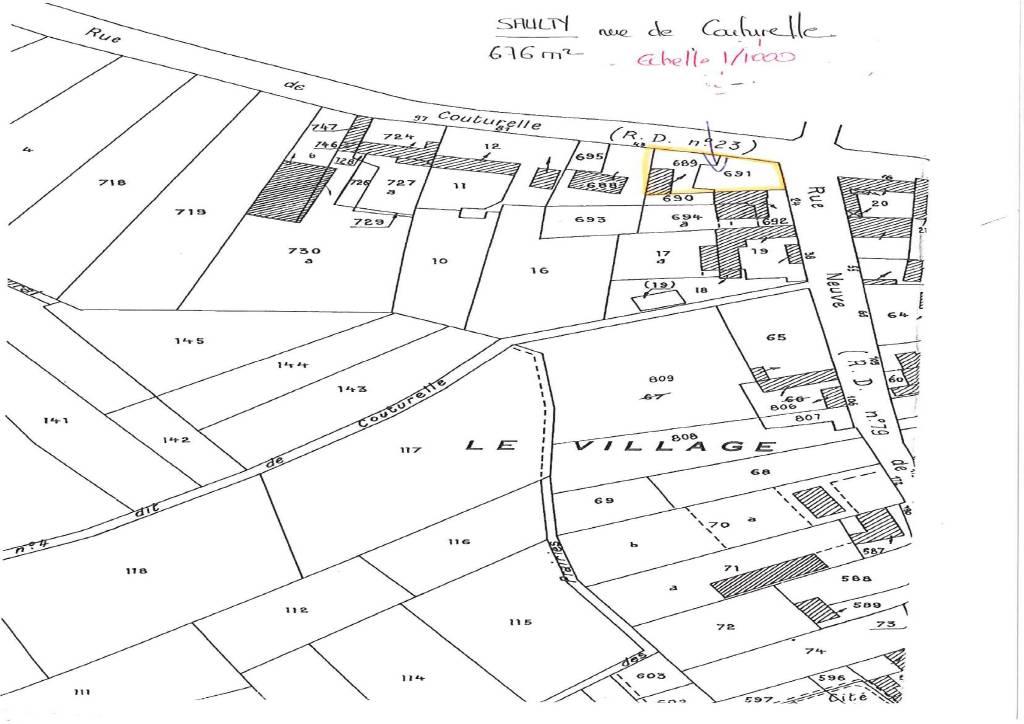 SAULTY rue de Couturelle
676 m²
Echelle 1/1000
Rue de Couturelle (R. D. n°23)
97
87
49
747
746
b
728
724
12
695
688
689
691
690
718
719
726
727
a
11
729
693
694
a
692
20
21
730
a
10
16
17
a
19
(19)
18
Rue Neuve (R. D. n°79 de
64
145
144
143
65
60
809
67
66
806
807
808
141
142
117
LE VILLAGE
n°4 dit de Couturelle
68
69
70
a
b
116
118
71
a
587
588
589
112
115
72
73
74
111
114
des
603
602
596
597
Cité